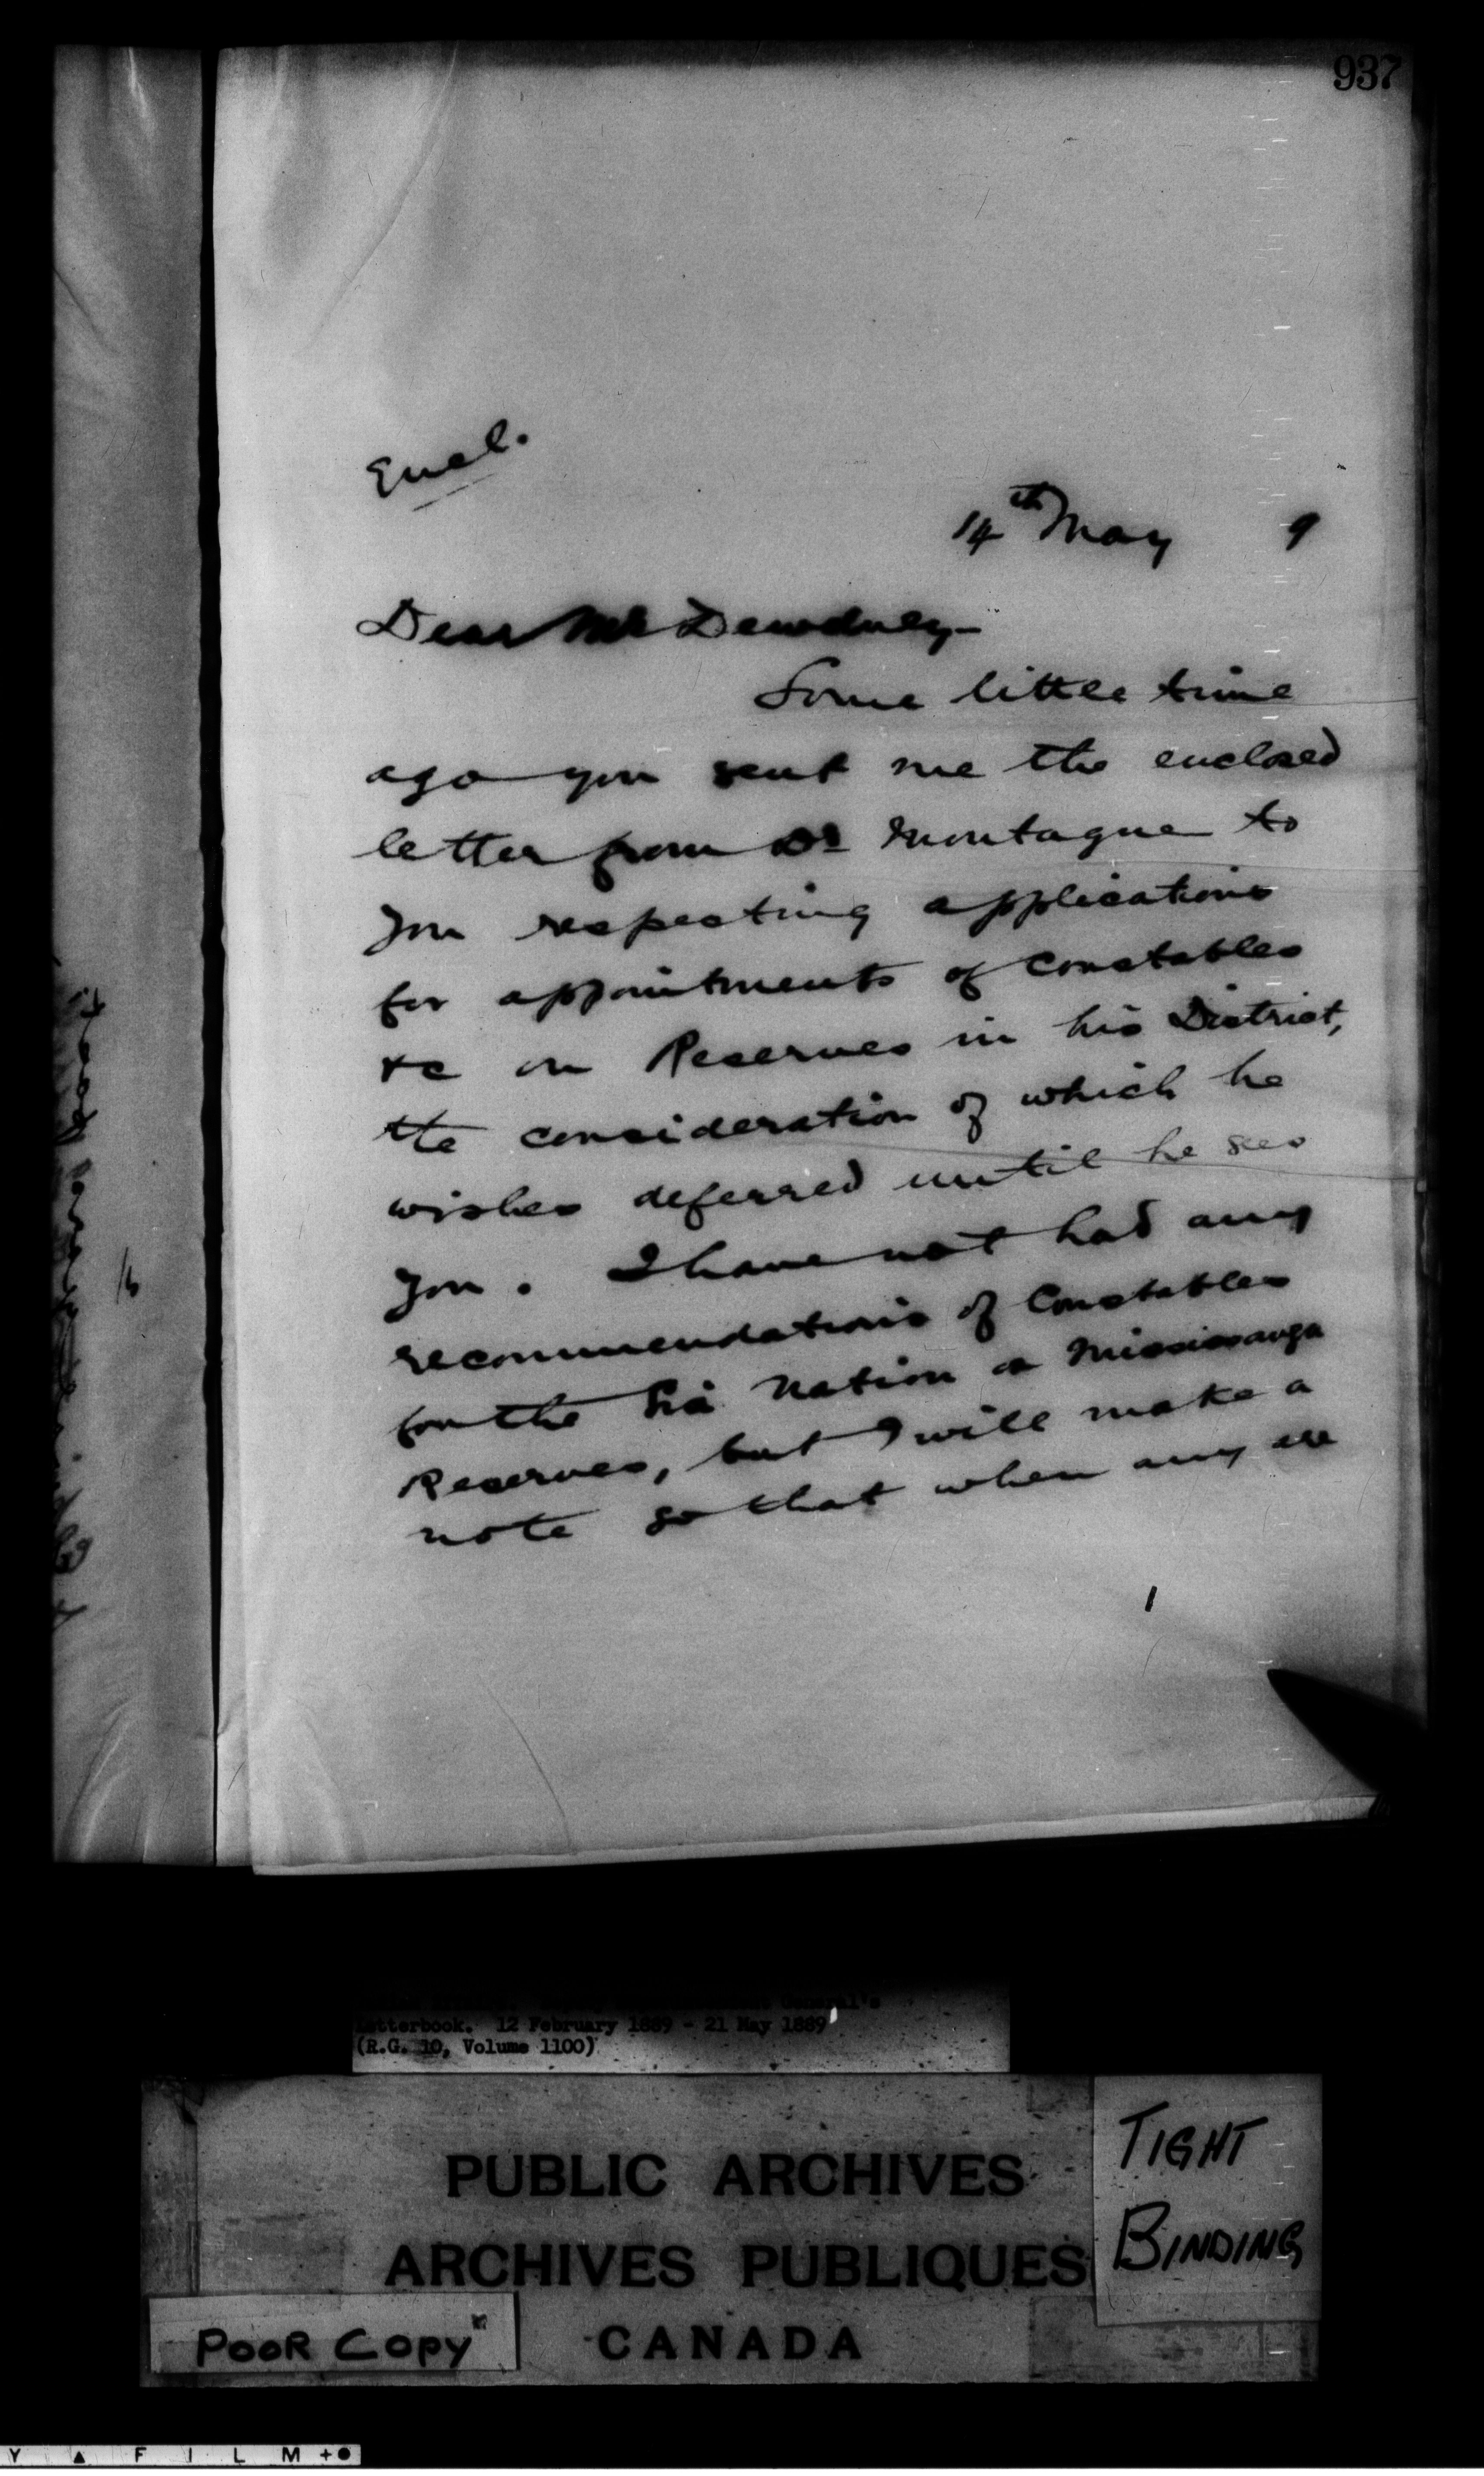 937
Encl.
14th May 9
Dear Mr Dewdney-
Some little time
ago you sent me the enclosed
letter from Dr Montague to
you respecting applications
for appointments of Constables
&c on Reserves in his District,
the consideration of which he
wishes deferred until he sees
you. I have not had any
recommendations of Constables
for the Six Nation or Mississauga
Reserves, but I will make a
note so that when any are
General's
Letterbook. 12 February 1889 - 21 May 1889
(R.G. 10, Volume 1100)
PUBLIC ARCHIVES
ARCHIVES PUBLIQUES
CANADA
TIGHT
BINDING
POOR COPY
Y A F I L M +